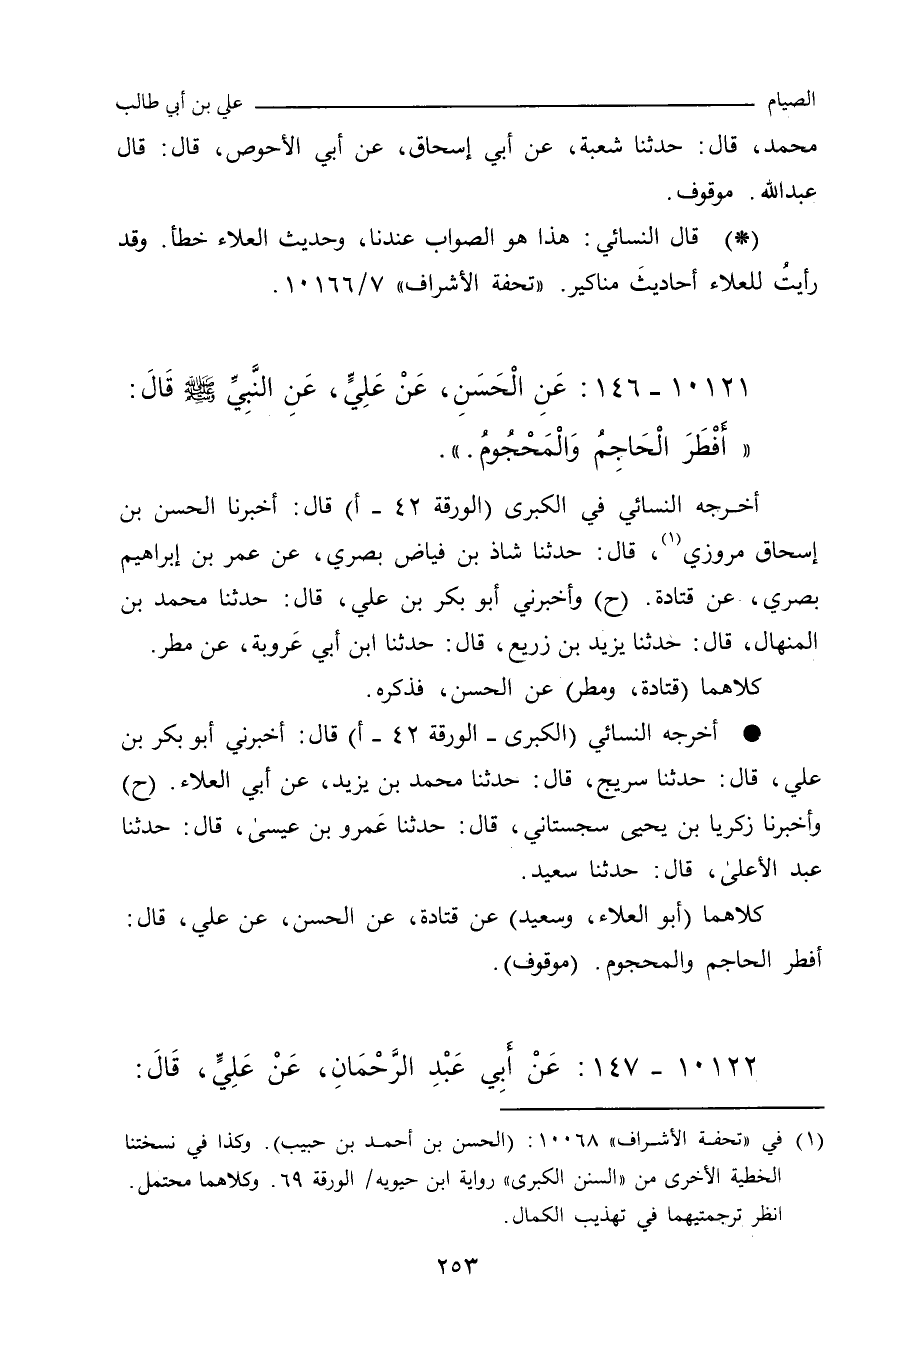 الصيام ـــــــــــــــــــــــــ علي بن أبي طالب
محمد، قال: حدثنا شعبة، عن أبي إسحاق، عن أبي الأحوص، قال: قال
عبدالله. موقوف.
(*) قال النسائي: هذا هو الصواب عندنا، وحديث العلاء خطأ. وقد
رأيتُ للعلاء أحاديثَ مناكير. «تحفة الأشراف» ١٠١٦٦/٧.
١٠١٢١ - ١٤٦: عَنِ الْحَسَنِ، عَنْ عَلِيٍّ، عَنِ النَّبِيِّ ﷺ قَالَ:
« أَفْطَرَ الْحَاجِمُ وَالْمَحْجُومُ.».
أخرجه النسائي في الكبرى (الورقة ٤٢ - أ) قال: أخبرنا الحسن بن
إسحاق مروزي(١)، قال: حدثنا شاذ بن فياض بصري، عن عمر بن إبراهيم
بصري، عن قتادة. (ح) وأخبرني أبو بكر بن علي، قال: حدثنا محمد بن
المنهال، قال: حدثنا يزيد بن زريع، قال: حدثنا ابن أبي عَروبة، عن مطر.
كلاهما (قتادة، ومطر) عن الحسن، فذكره.
● أخرجه النسائي (الكبرى - الورقة ٤٢ - أ) قال: أخبرني أبو بكر بن
علي، قال: حدثنا سريج، قال: حدثنا محمد بن يزيد، عن أبي العلاء. (ح)
وأخبرنا زكريا بن يحيى سجستاني، قال: حدثنا عَمرو بن عيسىٰ، قال: حدثنا
عبد الأعلىٰ، قال: حدثنا سعيد.
كلاهما (أبو العلاء، وسعيد) عن قتادة، عن الحسن، عن علي، قال:
أفطر الحاجم والمحجوم. (موقوف).
١٠١٢٢ - ١٤٧: عَنْ أَبِي عَبْدِ الرَّحْمَانِ، عَنْ عَلِيٍّ، قَالَ:
(١) في «تحفة الأشراف» ١٠٠٦٨: (الحسن بن أحمد بن حبيب). وكذا في نسختنا
الخطية الأخرى من «السنن الكبرى» رواية ابن حيويه/ الورقة ٦٩. وكلاهما محتمل.
انظر ترجمتيهما في تهذيب الكمال.
٢٥٣